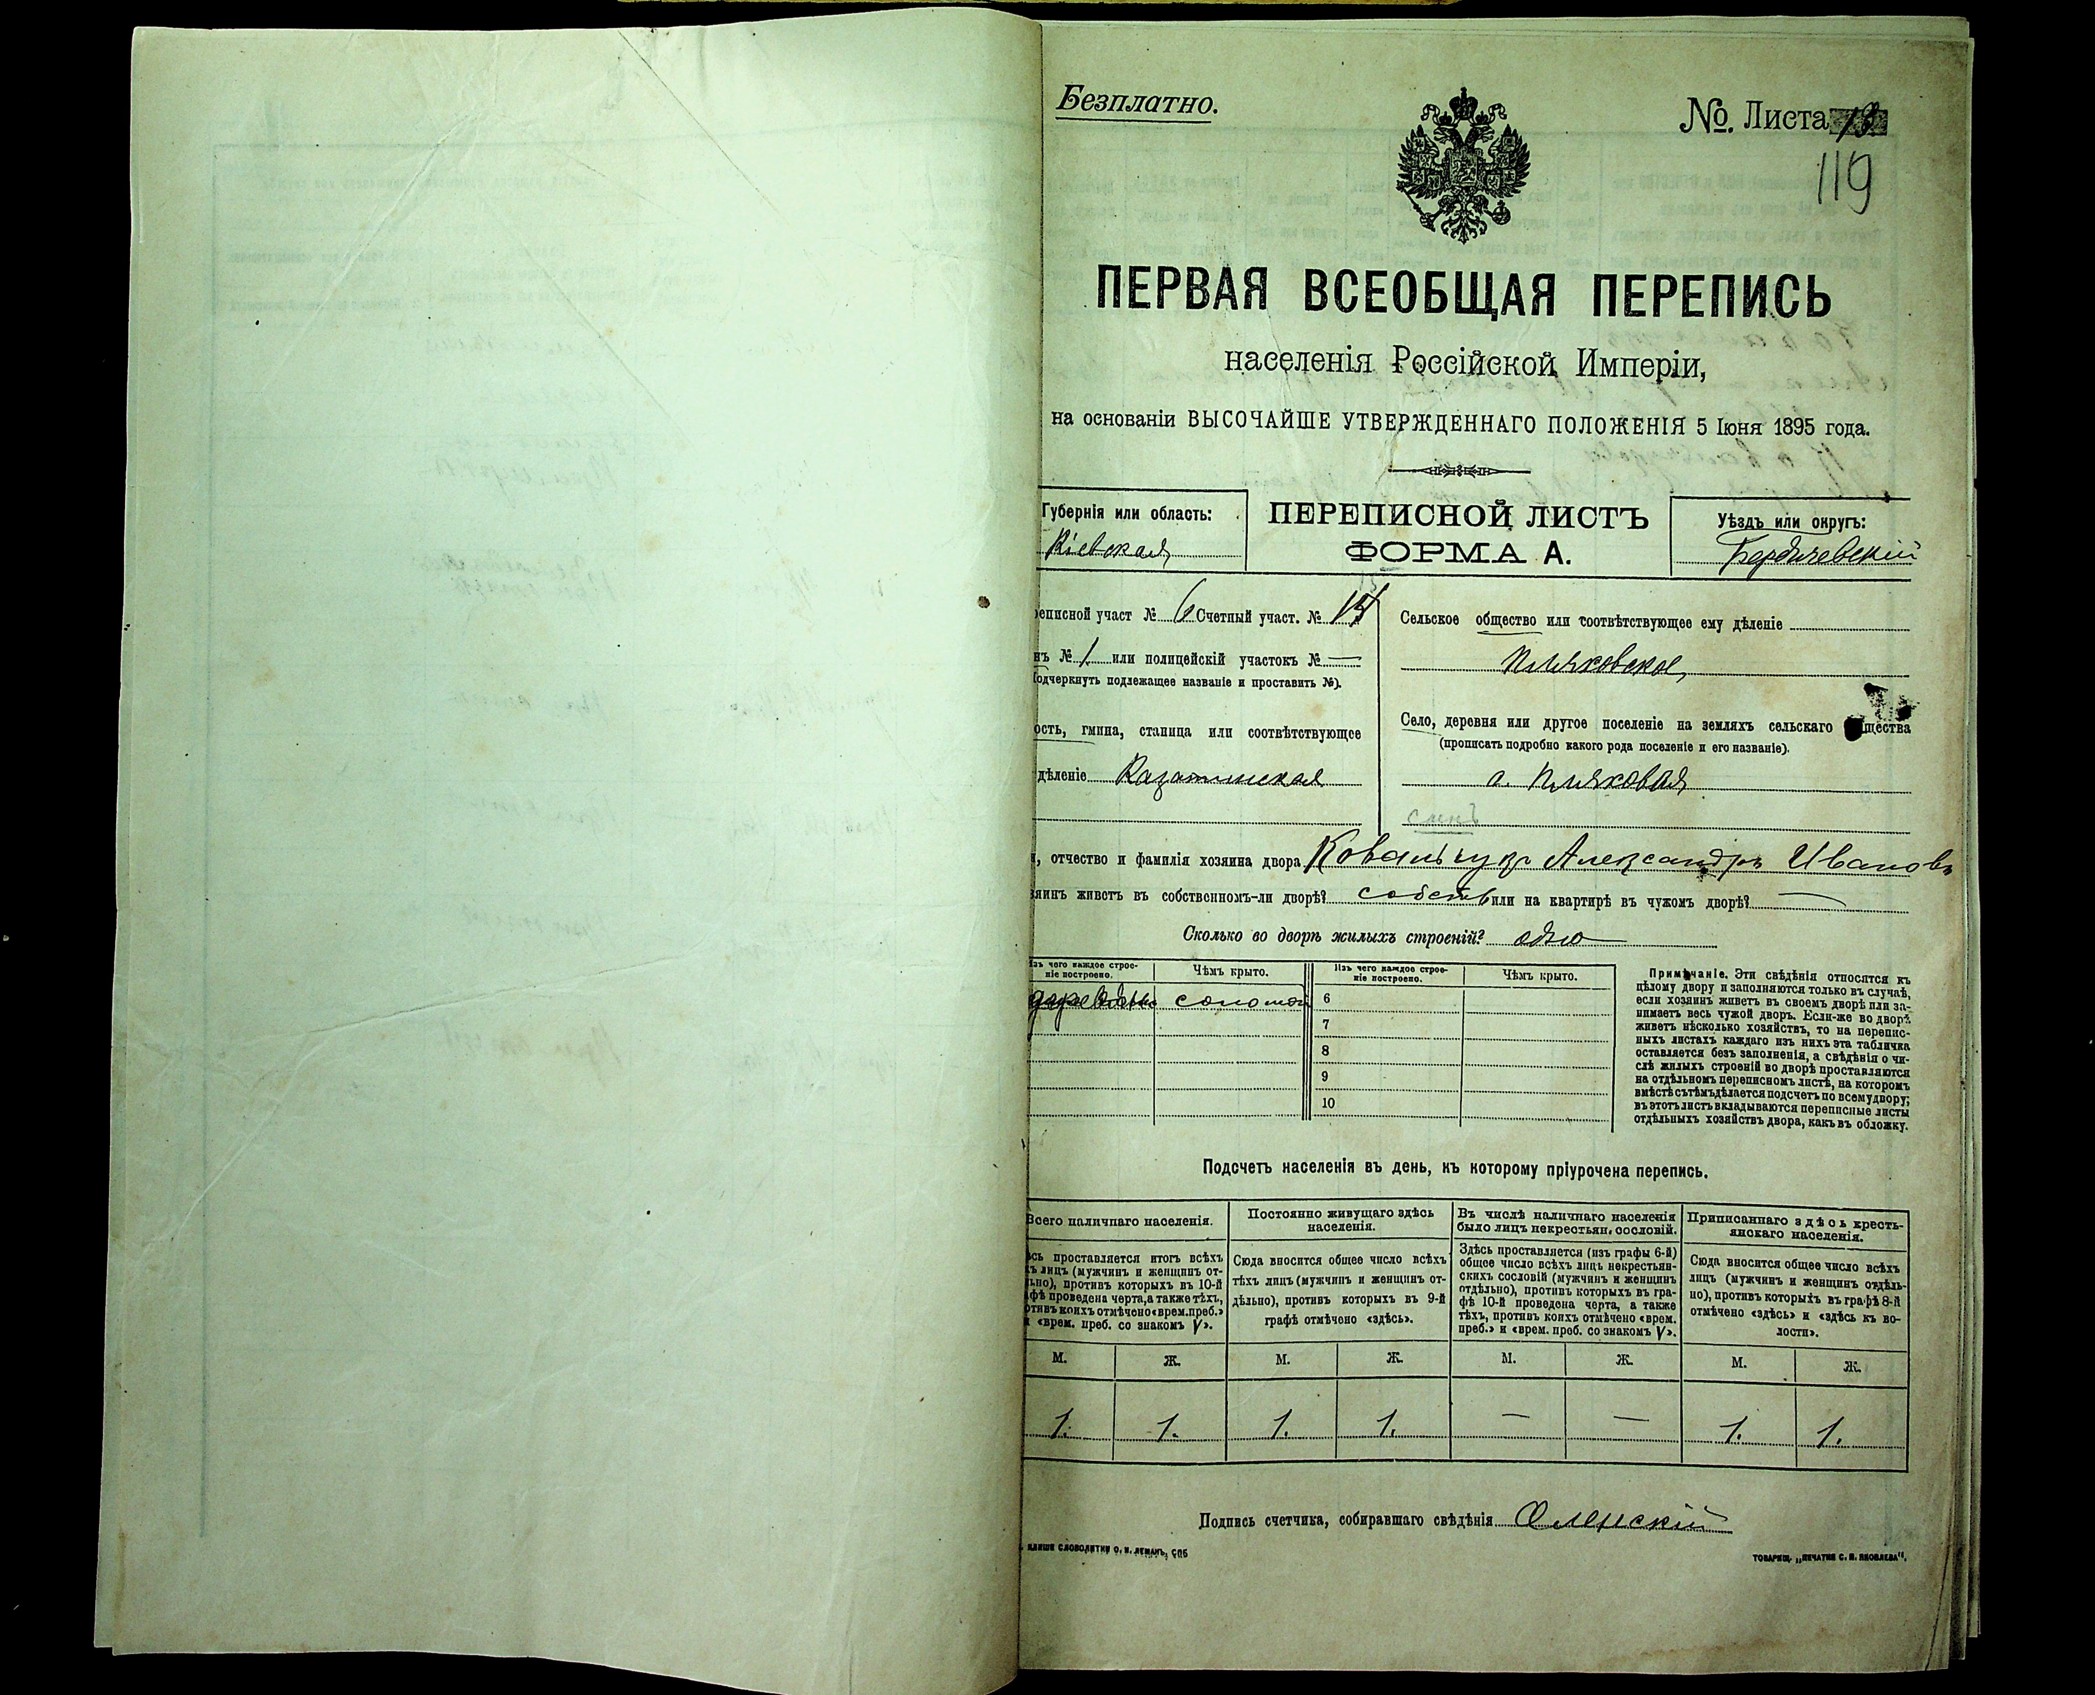 Безплатно.
№ Листа 13
119
ПЕРВАЯ ВСЕОБЩАЯ ПЕРЕПИСЬ
населенія Россійской Имперіи,
на основаніи ВЫСОЧАЙШЕ УТВЕРЖДЕННАГО ПОЛОЖЕНІЯ 5 Іюня 1895 года.
Губернія или область:
Кіевская
ПЕРЕПИСНОЙ ЛИСТЪ
ФОРМА А.
Уѣздъ или округъ:
Бердичевскій
еписной участ № 6 Счетный участ. №
нъ № 1 или полицейскій участокъ № —
одчеркнуть подлежащее названіе и проставить №).
ость, гмина, станица или соотвѣтствующее
дѣленіе Казатинская
Сельское общество или соотвѣтствующее ему дѣленіе
Пляховское
Село, деревня или другое поселеніе на земляхъ сельскаго щества
(прописать подробно какого рода поселеніе и его названіе).
с. Пляховая
, отчество и фамилія хозяина двора Ковальчукъ Александръ Ивановъ
яинъ живетъ въ собственномъ-ли дворѣ? собств или на квартирѣ въ чужомъ дворѣ? —
Сколько во дворѣ жилыхъ строеній? одно
Изъ чего каждое строе-
ніе построено.
Чѣмъ крыто.
Изъ чего каждое строе-
ніе построено.
Чѣмъ крыто.
соломой
6
7
8
9
10
Примѣчаніе. Эти свѣдѣнія относятся къ
цѣлому двору и заполняются только въ случаѣ,
если хозяинъ живетъ въ своемъ дворѣ или за-
нимаетъ весь чужой дворъ. Если-же во дворѣ
живетъ нѣсколько хозяйствъ, то на перепис-
ныхъ листахъ каждаго изъ нихъ эта табличка
оставляется безъ заполненія, а свѣдѣнія о чи-
слѣ жилыхъ строеній во дворѣ проставляются
на отдѣльномъ переписномъ листѣ, на которомъ
вмѣстѣ съ тѣмъ дѣлается подсчетъ по всему двору;
въ этотъ листъ вкладываются переписные листы
отдѣльныхъ хозяйствъ двора, какъ въ обложку.
Подсчетъ населенія въ день, къ которому пріурочена перепись.
Всего наличнаго населенія.
сь проставляется итогъ всѣхъ
ъ лицъ (мужчинъ и женщинъ от-
ьно), противъ которыхъ въ 10-й
фѣ проведена черта, а также тѣхъ,
отивъ коихъ отмѣчено «врем. преб.»
и «врем. преб. со знакомъ V».
Постоянно живущаго здѣсь
населенія.
Сюда вносится общее число всѣхъ
тѣхъ лицъ (мужчинъ и женщинъ от-
дѣльно), противъ которыхъ въ 9-й
графѣ отмѣчено «здѣсь».
Въ числѣ наличнаго населенія
было лицъ некрестьян. сословій.
Здѣсь проставляется (изъ графы 6-й)
общее число всѣхъ лицъ некрестьян-
скихъ сословій (мужчинъ и женщинъ
отдѣльно), противъ которыхъ въ гра-
фѣ 10-й проведена черта, а также
тѣхъ, противъ коихъ отмѣчено «врем.
преб.» и «врем. преб. со знакомъ V».
Приписаннаго здѣсь кресть-
янскаго населенія.
Сюда вносится общее число всѣхъ
лицъ (мужчинъ и женщинъ отдѣль-
но), противъ которыхъ въ графѣ 8-й
отмѣчено «здѣсь» и «здѣсь въ во-
лости».
М. Ж. М. Ж. М. Ж. М. Ж.
1. 1. 1. 1. — — 1. 1.
Подпись счетчика, собиравшаго свѣдѣнія
КЛИШЕ СЛОВОЛИТНИ О. И. ЛЕМАНЪ, СПБ
ТОВАРИЩ. „ПЕЧАТНЯ С. П. ЯКОВЛЕВА“.